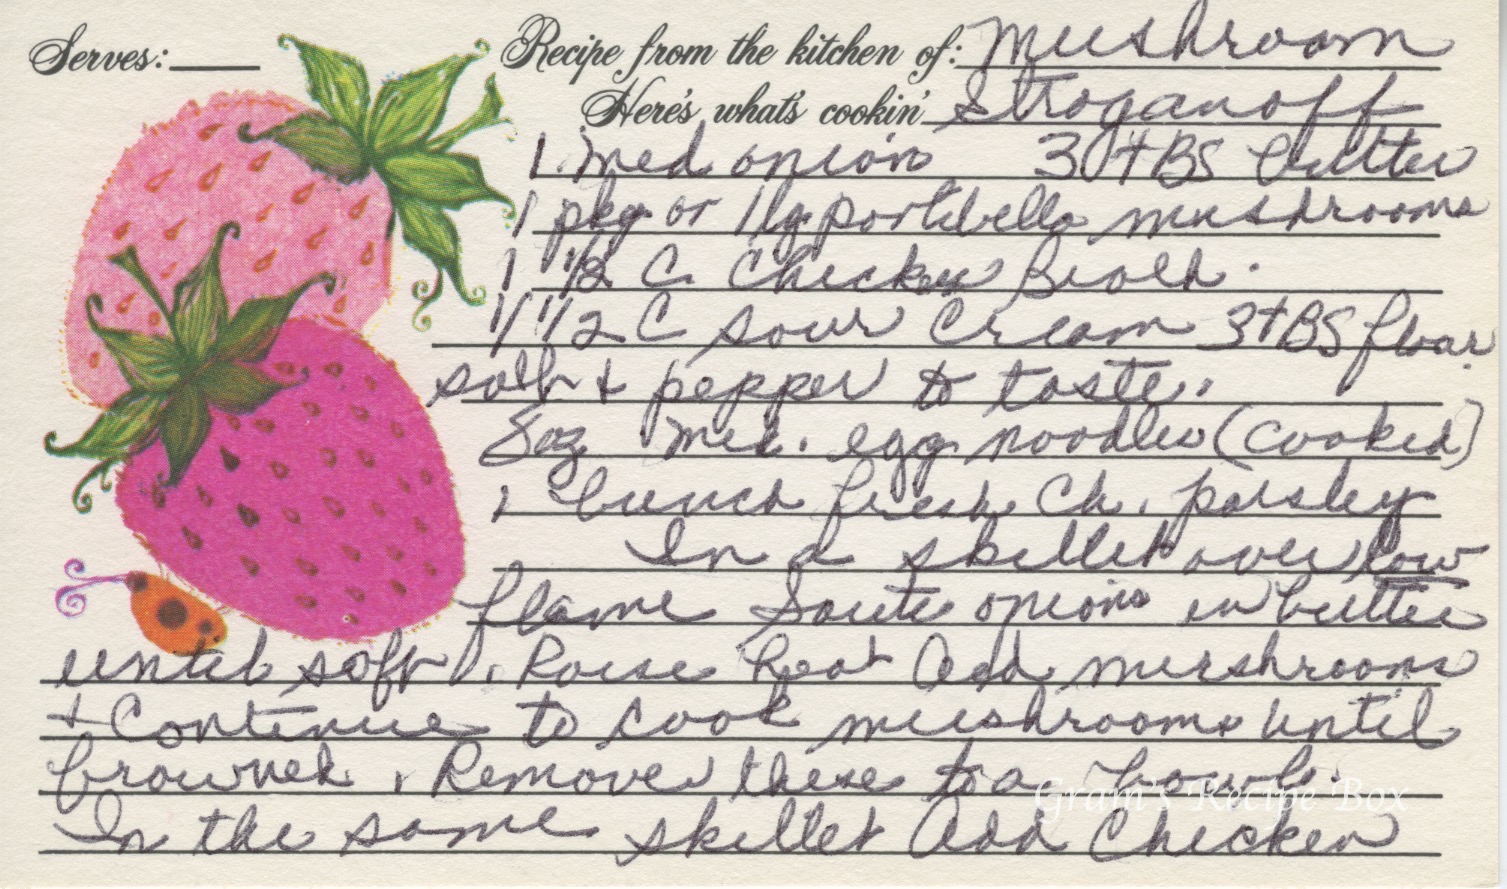 Serves:
Recipe from the kitchen of: Mushroom
Here's what's cookin' Stroganoff
1 med onion 3 tBS butter
1 pkg or 1 lg portibello mushrooms
1 1/2 C Chicken Broth.
1 1/2 C sour Cream 3 tBS flour
salt + pepper to taste.
8oz med. egg noodles (cooked)
1 bunch fresh Ch. parsley
In a skillet over low
flame Saute onions in butter
until soft. Raise heat Add mushrooms
+ Continue to cook mushrooms until
browned. Remove these to a bowl.
Gram's Recipe Box
In the same skillet Add Chicken